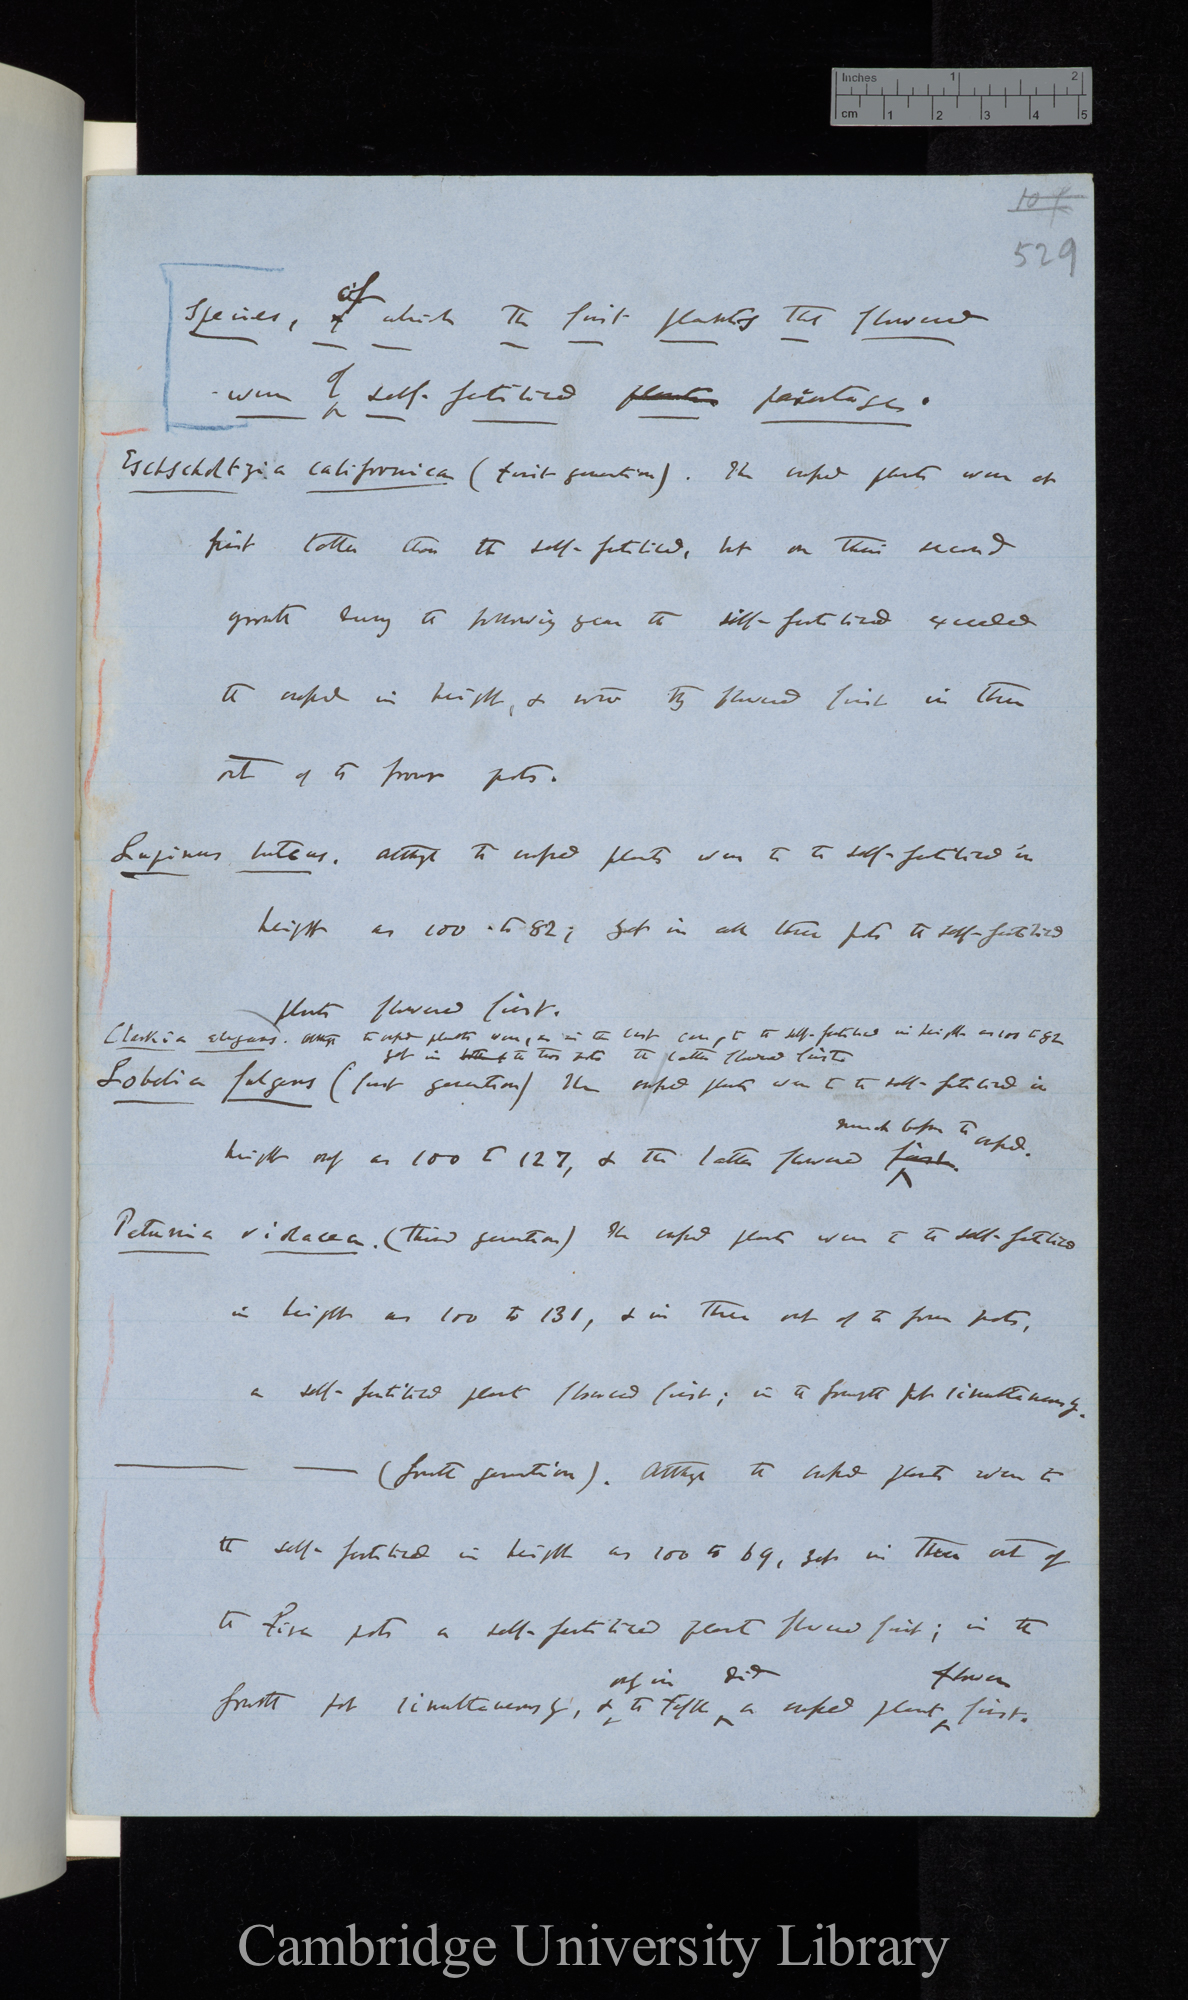 Inches 1 2
cm 1 2 3 4 5
104
529
Species, of which the first plants that flowered
were of self-fertilised plants parentage.
Eschscholtzia californica (first generation). The crossed plants were at
first taller than the self-fertilised, but on their second
growth during the following year the self-fertilised exceeded
the crossed in height, & now they flowered first in three
out of the four pots.
Lupinus luteus. Although the crossed plants were to the self-fertilised in
height as 100 to 82; yet in all three pots the self-fertilised
plants flowered first.
Clarkia elegans. Although the crossed plants were, as in the last case, to the self-fertilised in height as 100 to 82
yet in the two pots the latter flowered first
Lobelia fulgens (first generation) The crossed plants were to the self-fertilised in
much before the crossed.
height only as 100 to 127, & the latter flowered first.
Petunia violacea. (third generation) The crossed plants were to the self-fertilised
in height as 100 to 131, & in three out of the four pots,
a self-fertilised plant flowered first; in the fourth pot simultaneously.
(fourth generation). Although the crossed plants were to
the self-fertilised in height as 100 to 69, yet in three out of
the five pots a self-fertilised plant flowered first; in the
only in did flower
fourth pot simultaneously, & the fifth a crossed plant first.
Cambridge University Library